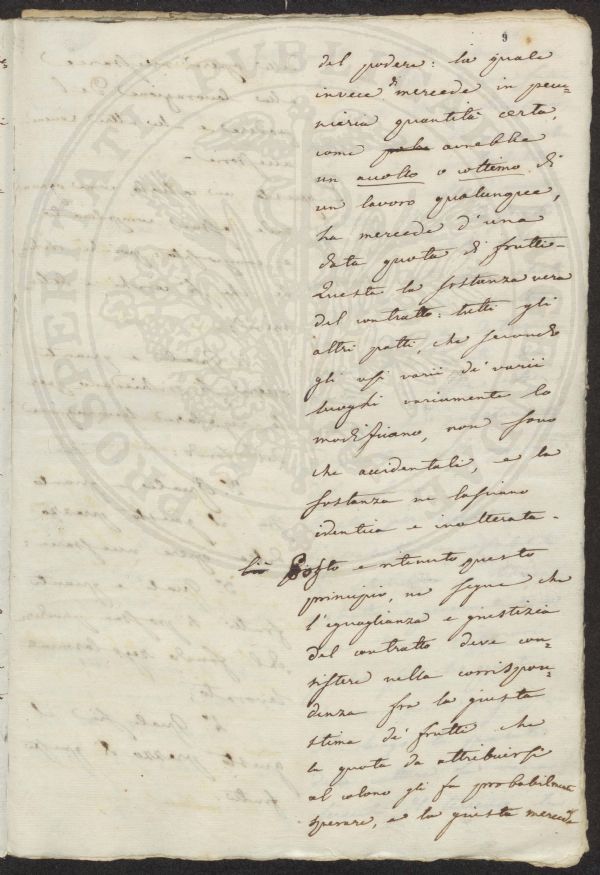 9
del podere: la quale
invece di mercede in pecu=
niaria quantità certa,
come avrebbe
un accolto o cottimo di
un lavoro qualunque,
ha mercede d'una
data quota di frutti.
Questa la sostanza vera
del contratto: tutti gli
altri patti, che secondo
gli usi varii di varii
luoghi variamente lo
modificano, non sono
che accidentali, e la
sostanza ne lasciano
identica e inalterata.
Posto e ritenuto questo
principio, ne segue che
l'eguaglianza e giustizia
del contratto deve con=
sistere nella corrispon=
denza fra la giusta
stima de' frutti che
la quota da attribuirsi
al colono gli fa probabilmente
sperare, e la giusta mercede
PROSPERITATI PUBLICAE